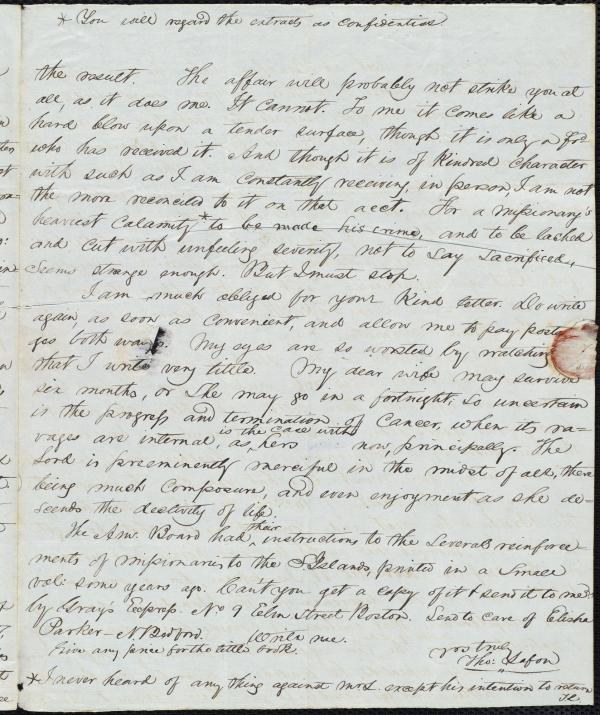 * You will regard the extracts as confidential
the result. The affair will probably not strike you at
all, as it does me. It cannot. To me it comes like a
hard blow upon a tender surface, though it is only a frd
who has received it. And though it is of kindred character
with such as I am constantly receiving, in person, I am not
the more reconciled to it on that acct. For a missionary's
heaviest calamity* to be made his crime, and to be lashed
and cut with unfeeling severity, not to say sacrificed,
seems strange enough. But I must stop.
I am much obliged for your kind letter. Do write
again as soon as convenient, and allow me to pay posta-
ges both ways. My eyes are so worsted by watching
that I write very little. My dear wife may survive
six months, or she may go in a fortnight; so uncertain
is the progress and termination of Cancer, when its ra-
vages are internal, as is the case with hers now, principally. The
Lord is preeminently merciful in the midst of all, there
being much composure, and even enjoyment as she de-
scends the declivity of life.
The Am. Board had their instructions to the several reinforce-
ments of missionaries to the S. Islands, printed in a small
vol: some years ago. Can't you get a copy of it & send it to me
by Gray's Express. No 9 Elm Street Boston. Send to care of Elisha
Parker - N Bedford. Write me.
Give any price for the little book.
yos truly
Tho: Lafon
* I never heard of any thing against except his intention to return